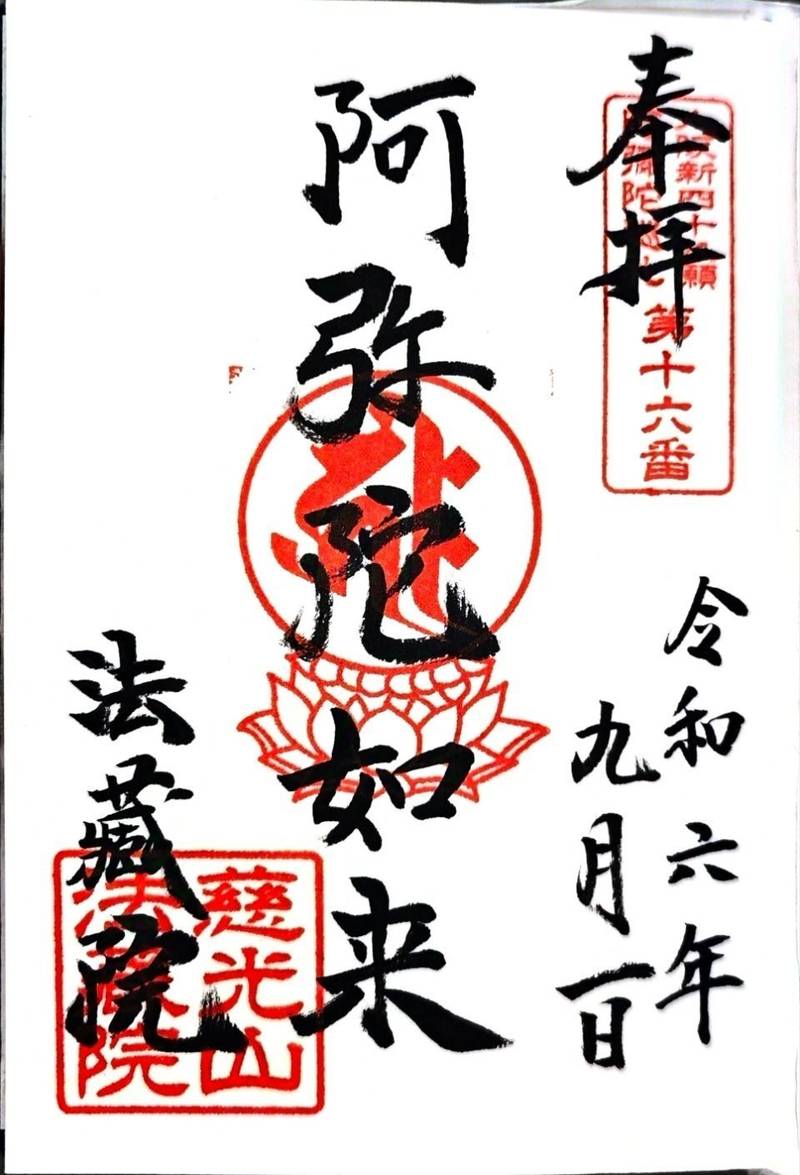 奉拝
大阪新四十八願
阿弥陀巡礼
第十六番
令和六年
九月一日
阿弥陀如来
法藏院
慈光山
法藏院